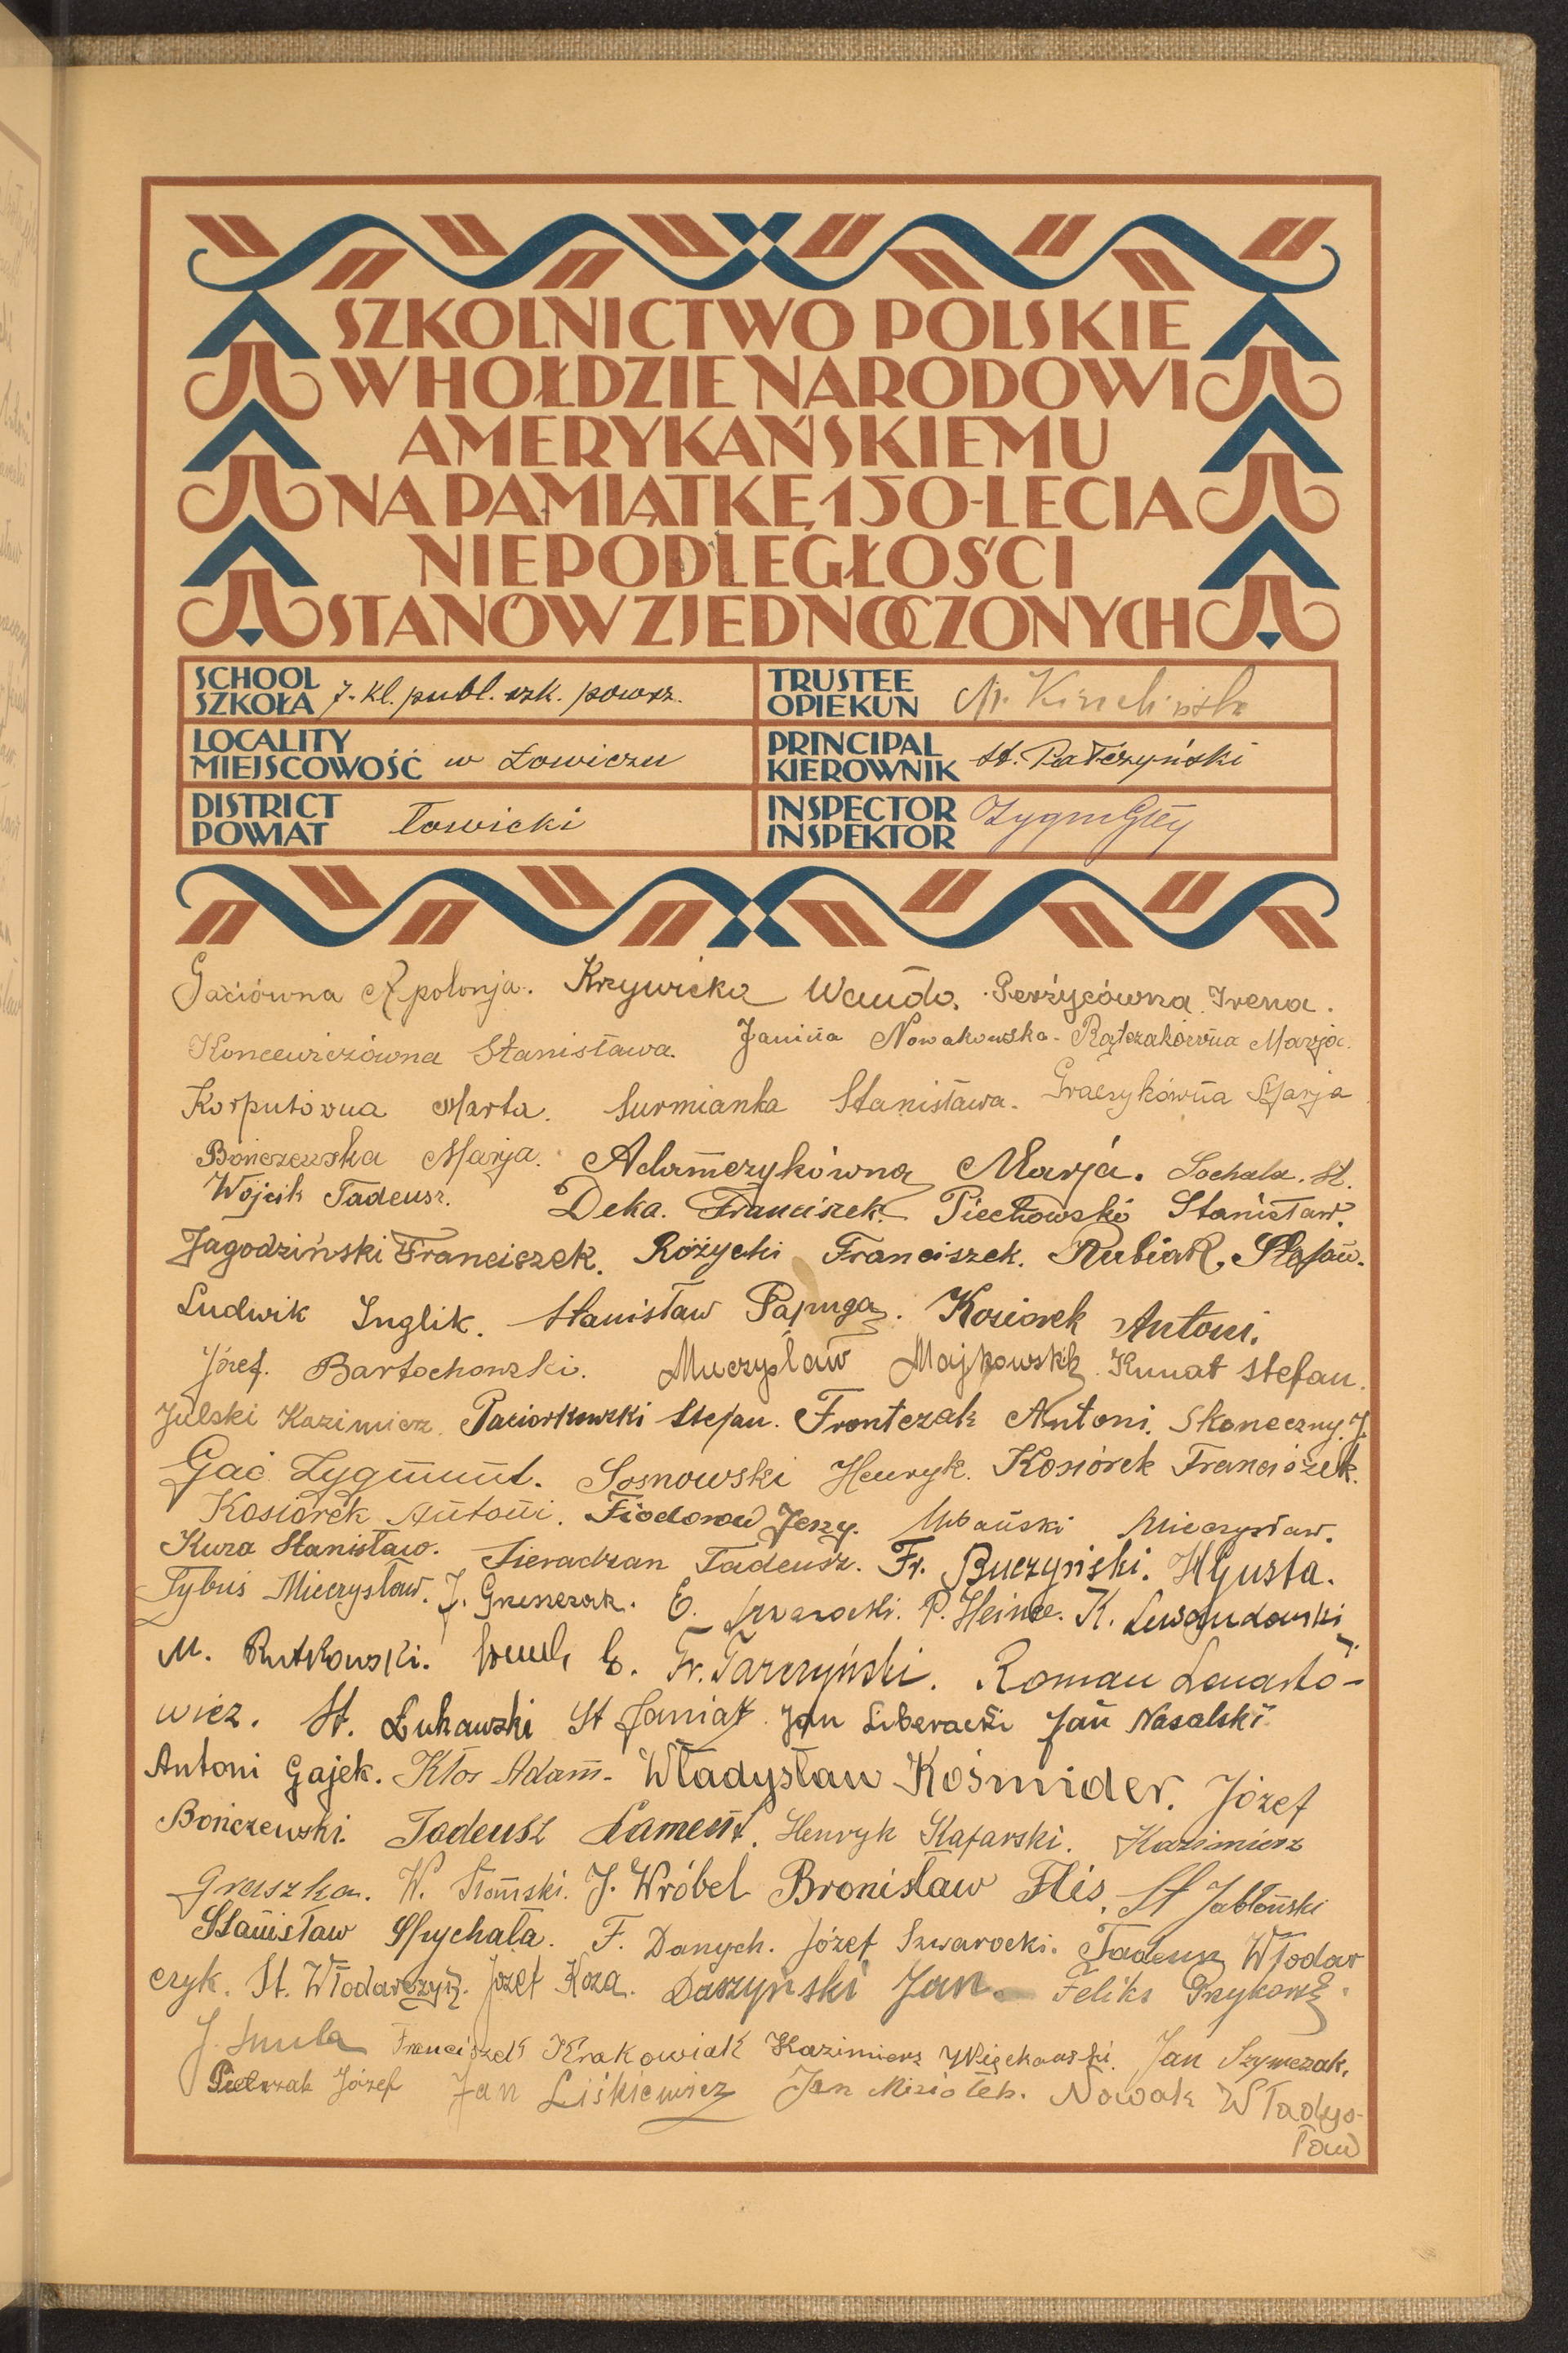 SZKOLNICTWO POLSKIE
W HOŁDZIE NARODOWI
AMERYKAŃSKIEMU
NA PAMIĄTKĘ 150-LECIA
NIEPODLEGŁOŚCI
STANÓW ZJEDNOCZONYCH
SCHOOL
SZKOŁA 7-kl. publ. szk. powsz.
TRUSTEE
OPIEKUN
LOCALITY
MIEJSCOWOŚĆ w Łowiczu
PRINCIPAL
KIEROWNIK St.
DISTRICT
POWIAT Łowicki
INSPECTOR
INSPEKTOR
Gaciówna Apolonja. Krzywicka Wanda. Perzycówna Irena.
Koncewiczówna Stanisława. Janina Nowakowska. Ratczakówna Marja.
Korputówna Marta. Surmianka Stanisława. Graczykówna Marja
Bończewska Marja. Adamczykówna Marja. Sochala. St.
Wójcik Tadeusz. Deka. Franciszek. Piechowski Stanisław.
Jagodziński Franciszek. Różycki Franciszek. Kubiak, Stefan.
Ludwik Inglik. Stanisław Papuga. Koziorek Antoni.
Józef. Bartochowski. Mieczysław Majkowski. Kunat Stefan.
Julski Kazimierz. Paciorkowski Stefan. Frontczak Antoni. Skoneczny. J.
Gać Zygmunt. Sosnowski Henryk. Kosiorek Franciszek.
Kosiorek Antoni. Fiodorow Jerzy. Urbański Mieczysław.
Kuza Stanisław. Sieradzan Tadeusz. Fr. Buczyński. H Gusta.
Tybuś Mieczysław. J. E. P. Heince. K. Lewandowski
M. Rutkowski. E. Fr. Tarczyński. Roman Lenarto-
wicz. St. Łukawski St Janiak Jan Liberacki Jan Nasalski
Antoni Gajek. Kłos Adam. Władysław Kośmider. Józef
Bończewski. Tadeusz Lament. Henryk Kafarski. Kazimierz
Graszka. W. Słomski. J. Wróbel Bronisław Flis. St Jabłoński
Stanisław Spychała. F. Danych. Józef Szwarocki. Tadeusz Włodar
czyk. St. Włodarczyk. Józef Koza. Daszyński Jan. Feliks
J. Franciszek Krakowiak Kazimierz Więckowski. Jan Szymczak.
Pietrzak Józef Jan Liśkiewicz Jan Miziołek. Nowak Władys-
ław